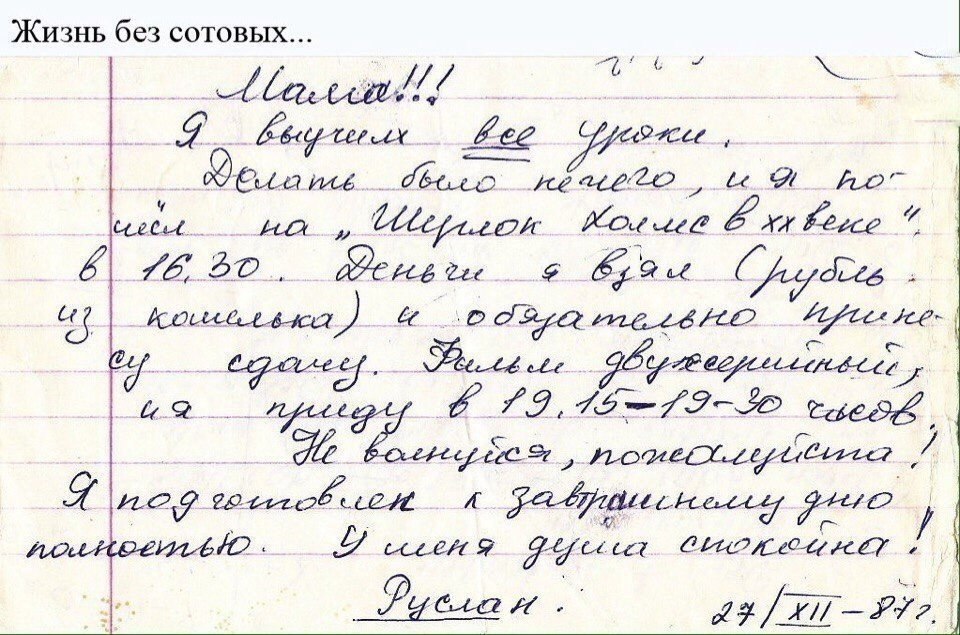 Жизнь без сотовых...
Мама!!!
Я выучил все уроки.
Делать было нечего, и я по-
шёл на „Шерлок Холмс в XX веке".
в 16.30. Деньги я взял (рубль
из кошелька) и обязательно прине-
су сдачу. Фильм двухсерийный,
и я приду в 19.15-19-30 часов.
Не волнуйся, пожалуйста!
Я подготовлен к завтрашнему дню
полностью. У меня душа спокойна!
Руслан.
27/XII-87г.